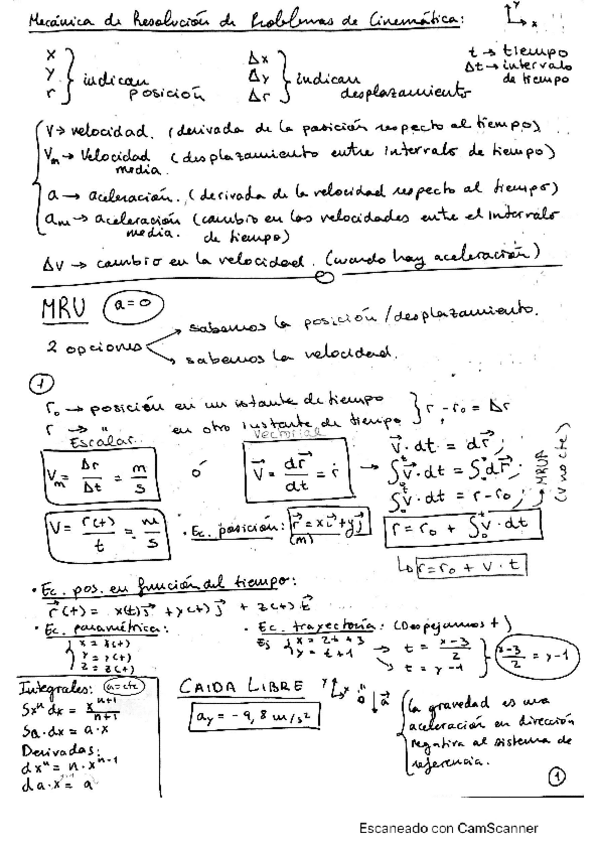 Mecánica de Resolución de Problemas de Cinemática: y x
x
y } indican posición
r
Δx
Δy } indican desplazamiento
Δr
t → tiempo
Δt → intervalo de tiempo
V → velocidad. (derivada de la posición respecto al tiempo)
Vm → Velocidad media. (desplazamiento entre intervalo de tiempo)
a → aceleración. (derivada de la velocidad respecto al tiempo)
am → aceleración media. (cambio en las velocidades entre el intervalo de tiempo)
ΔV → cambio en la velocidad. (cuando hay aceleración)
MRU (a=0)
2 opciones → sabemos la posición/desplazamiento.
→ sabemos la velocidad.
①
r₀ → posición en un instante de tiempo
r → " en otro instante de tiempo } r - r₀ = Δr
Escalar Vectorial
Vm = Δr/Δt = m/s ó V⃗ = dr⃗/dt = ṙ → V⃗ · dt = dr⃗;
∫V⃗ · dt = ∫dr⃗;
∫V⃗ · dt = r - r₀;
V = r(t)/t = m/s · Ec. posición: r⃗ = xi⃗ + yj⃗ (m)
r = r₀ + ∫V⃗ · dt → MRUA (V no cte)
↳ r = r₀ + V · t
· Ec. pos. en función del tiempo:
r⃗(t) = x(t)i⃗ + y(t)j⃗ + z(t)k⃗
· Ec. paramétrica:
x = x(t)
y = y(t)
z = z(t)
· Ec. trayectoria: (Despejamos t)
Ej { x = 2t + 3 → t = x-3/2
y = t + 1 → t = y - 1 } x-3/2 = y-1
Integrales: (a=cte)
∫xⁿ dx = xⁿ⁺¹/n+1
∫a·dx = a·x
Derivadas:
dxⁿ = n·xⁿ⁻¹
da·x = a
CAIDA LIBRE y x 0 a⃗
ay = -9,8 m/s²
La gravedad es una
aceleración en dirección
negativa al sistema de
referencia.
①
Escaneado con CamScanner